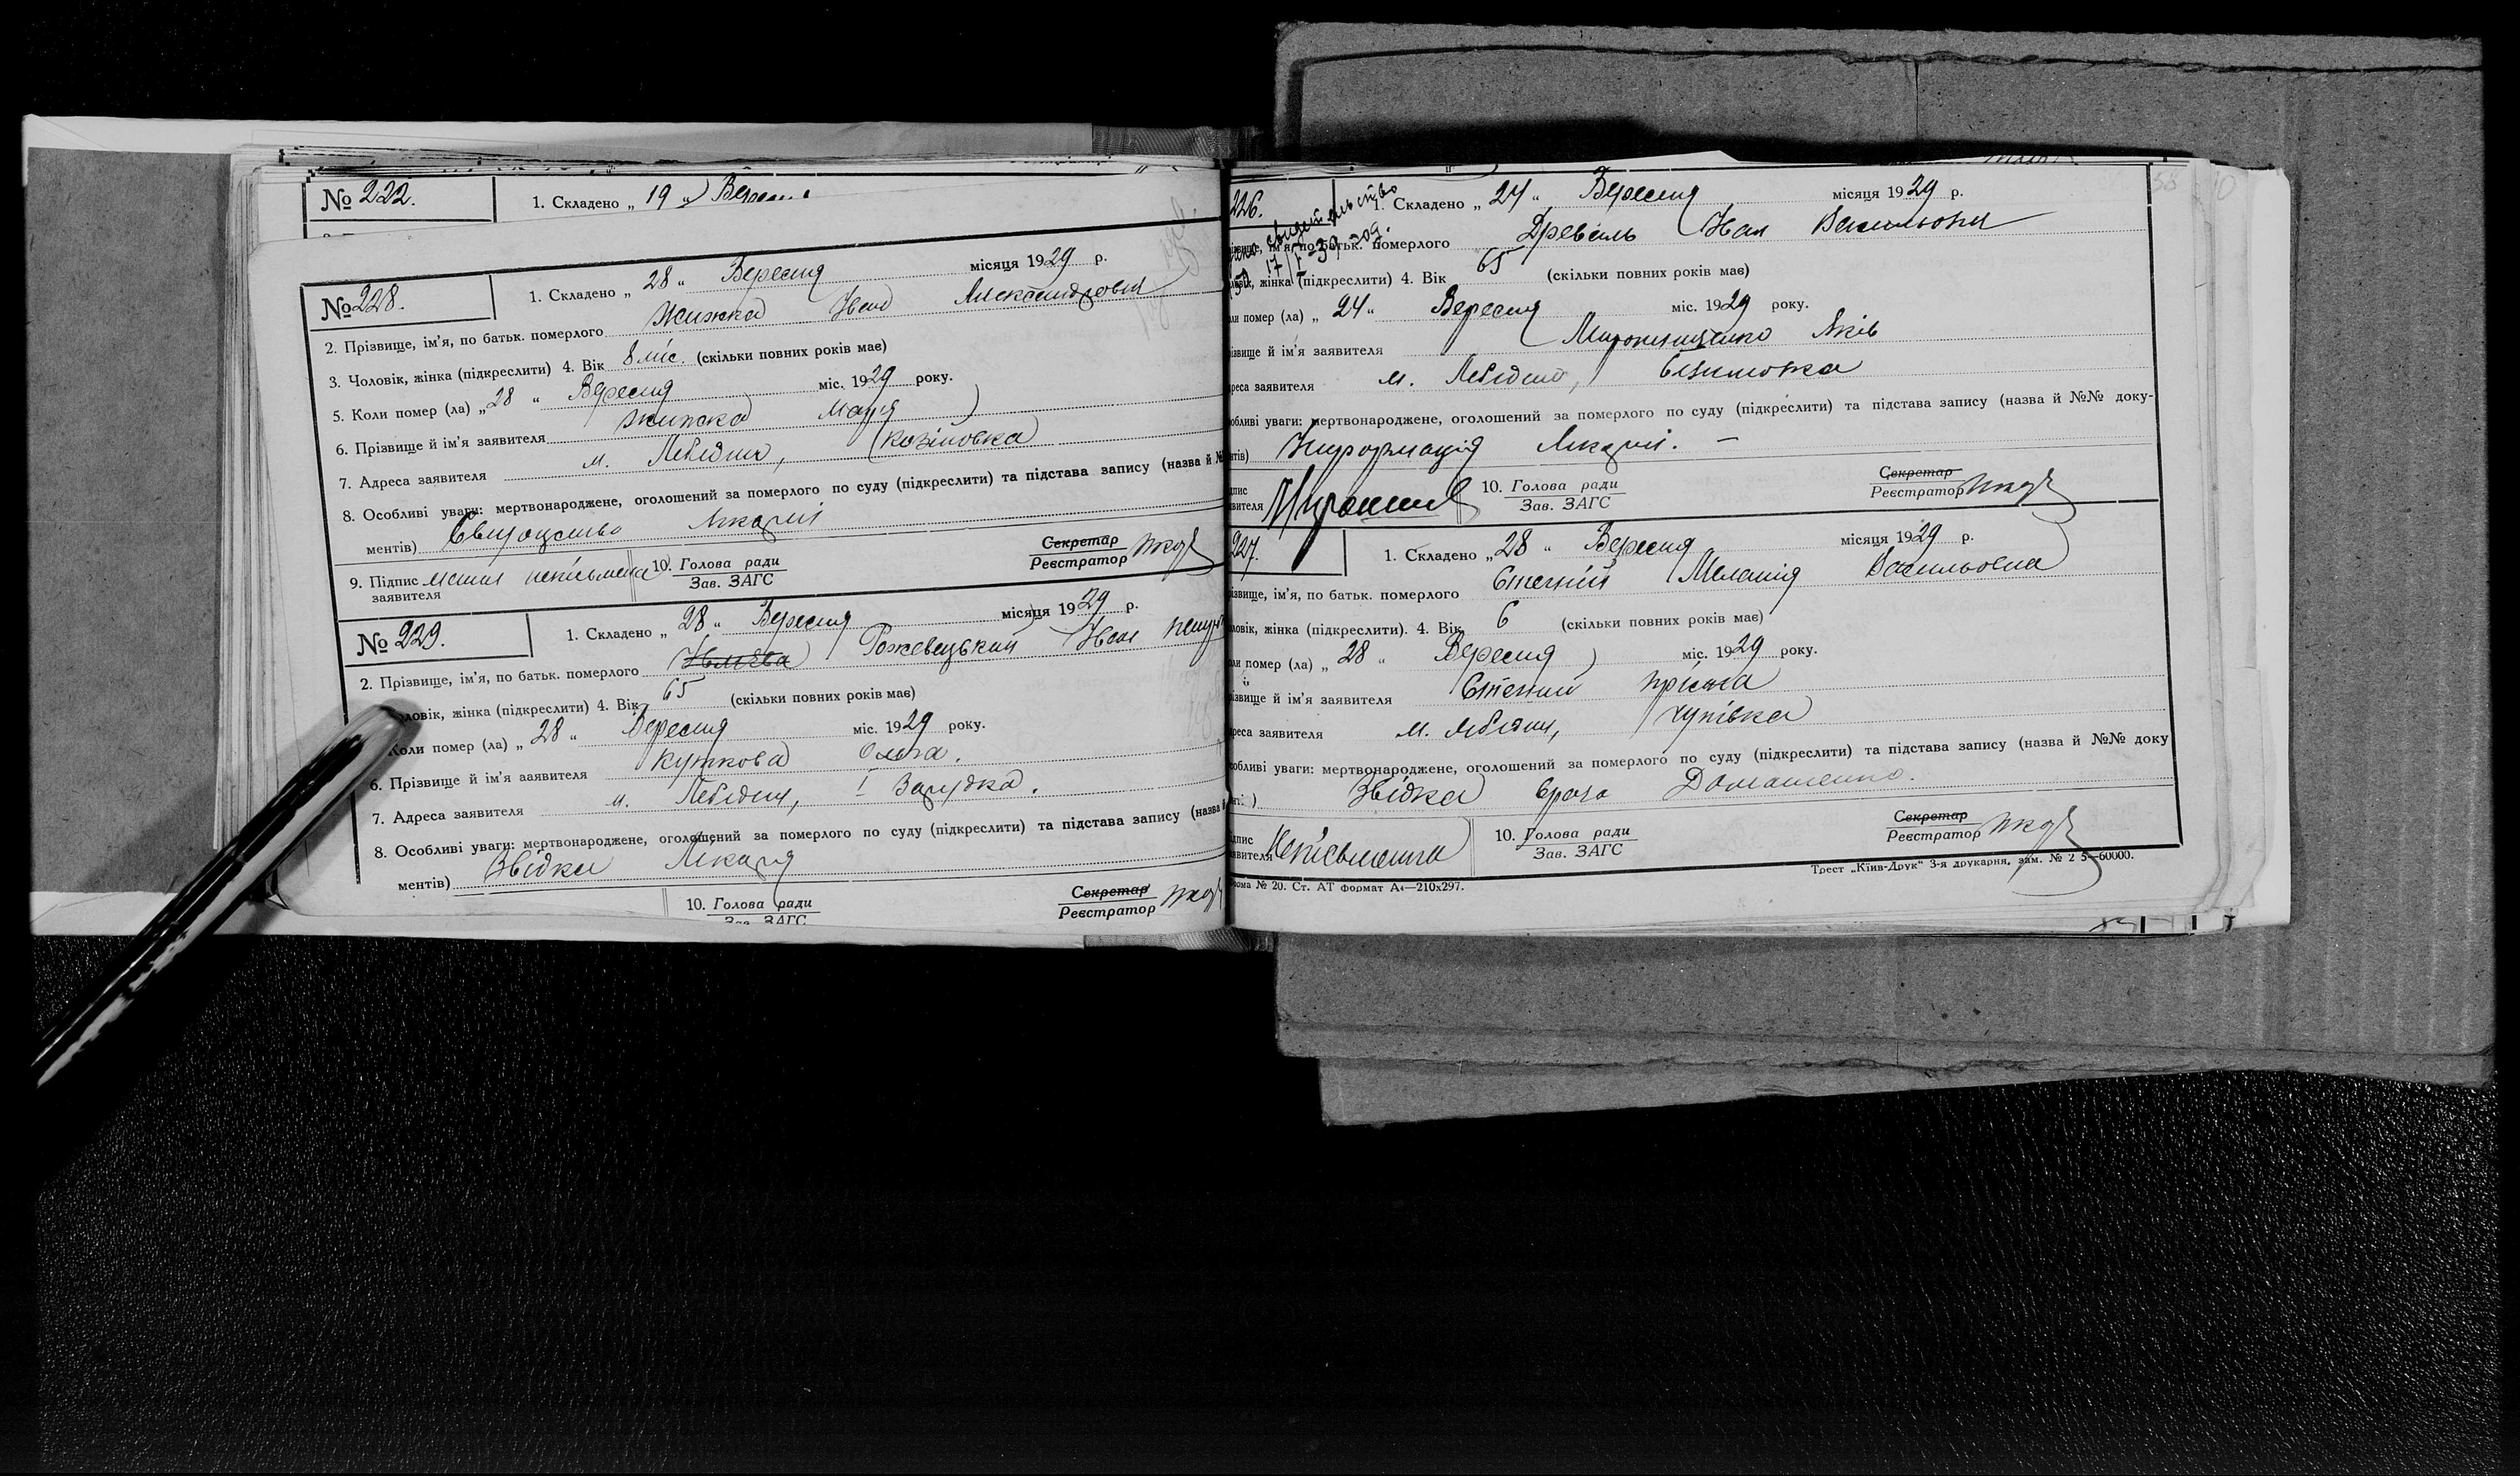 № 222.
1. Складено „ 19 „ Вересня
№ 228.
1. Складено „ 28 „ Вересня місяця 1929 р.
2. Прізвище, ім'я, по батьк. померлого Жижка Іван Александрович
3. Чоловік, жінка (підкреслити) 4. Вік 8 міс. (скільки повних років має)
5. Коли помер (ла) „ 28 „ Вересня міс. 1929 року.
6. Прізвище й ім'я заявителя Жижка Марія
7. Адреса заявителя м. Лебедин, (Козіповка)
8. Особливі уваги: мертвонароджене, оголошений за померлого по суду (підкреслити) та підстава запису (назва й №
ментів) Свидоцтво Лікарні
9. Підпис заявителя неписьмена
10. Голова ради
Зав. ЗАГС
Секретар
Реєстратор
№ 229.
1. Складено „ 28 „ Вересня місяця 1929 р.
2. Прізвище, ім'я, по батьк. померлого Рожевецький Іван
ловік, жінка (підкреслити) 4. Вік 65 (скільки повних років має)
Коли помер (ла) „ 28 „ Вересня міс. 1929 року.
6. Прізвище й ім'я заявителя Куткова Ольга.
7. Адреса заявителя м. Лебедин, I Зарудка.
8. Особливі уваги: мертвонароджене, оголошений за померлого по суду (підкреслити) та підстава запису (назва
ментів) Звідка Лікаря
10. Голова ради
Зав. ЗАГС
Секретар
Реєстратор
226.
1. Складено „ 24 „ Вересня місяця 1929 р.
різвище, ім'я, по батьк. померлого Древаль Іван Васильови
ловік, жінка (підкреслити) 4. Вік 65 (скільки повних років має)
ли помер (ла) „ 24 „ Вересня міс. 1929 року.
різвище й ім'я заявителя Мирошниченко Яків
реса заявителя м. Лебедин,
обливі уваги: мертвонароджене, оголошений за померлого по суду (підкреслити) та підстава запису (назва й №№ доку-
нтів) Информація Лікарні. —
дпис
явителя
10. Голова ради
Зав. ЗАГС
Секретар
Реєстратор
227.
1. Складено „ 28 „ Вересня місяця 1929 р.
різвище, ім'я, по батьк. померлого Меланія Васильовна
ловік, жінка (підкреслити). 4. Вік 6 (скільки повних років має)
ли помер (ла) „ 28 „ Вересня міс. 1929 року.
різвище й ім'я заявителя
реса заявителя м. Лебедин,
обливі уваги: мертвонароджене, оголошений за померлого по суду (підкреслити) та підстава запису (назва й №№ доку
Звідка врача Домашенко.
дпис
явителя Неписьменна
10. Голова ради
Зав. ЗАГС
Секретар
Реєстратор
Трест „Київ-Друк" 3-я друкарня, зам. № 2 5—60000.
рома № 20. Ст. АТ формат А4—210х297.